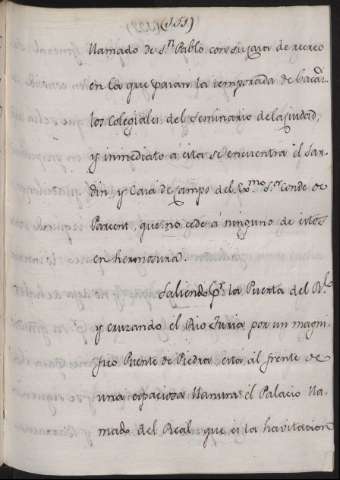 (155)
llamado de Sn. Pablo, con su casa de recreo
en la que pasan la temporada de bacacs.
los Colegiales del Seminario de la Ciudad,
y inmediato à esta se encuentra el Jar-
din, y Casa de Campo del Exmo. Sr. Conde de
Parcent, que no cede à ninguno de estos
en hermosura.
Saliendo pr. la Puerta del Rl.
y cruzando el Rio Turia por un magni-
fico Puente de Piedra, esta al frente de
una espaciosa llanura el Palacio lla-
mado del Real que es la havitacion